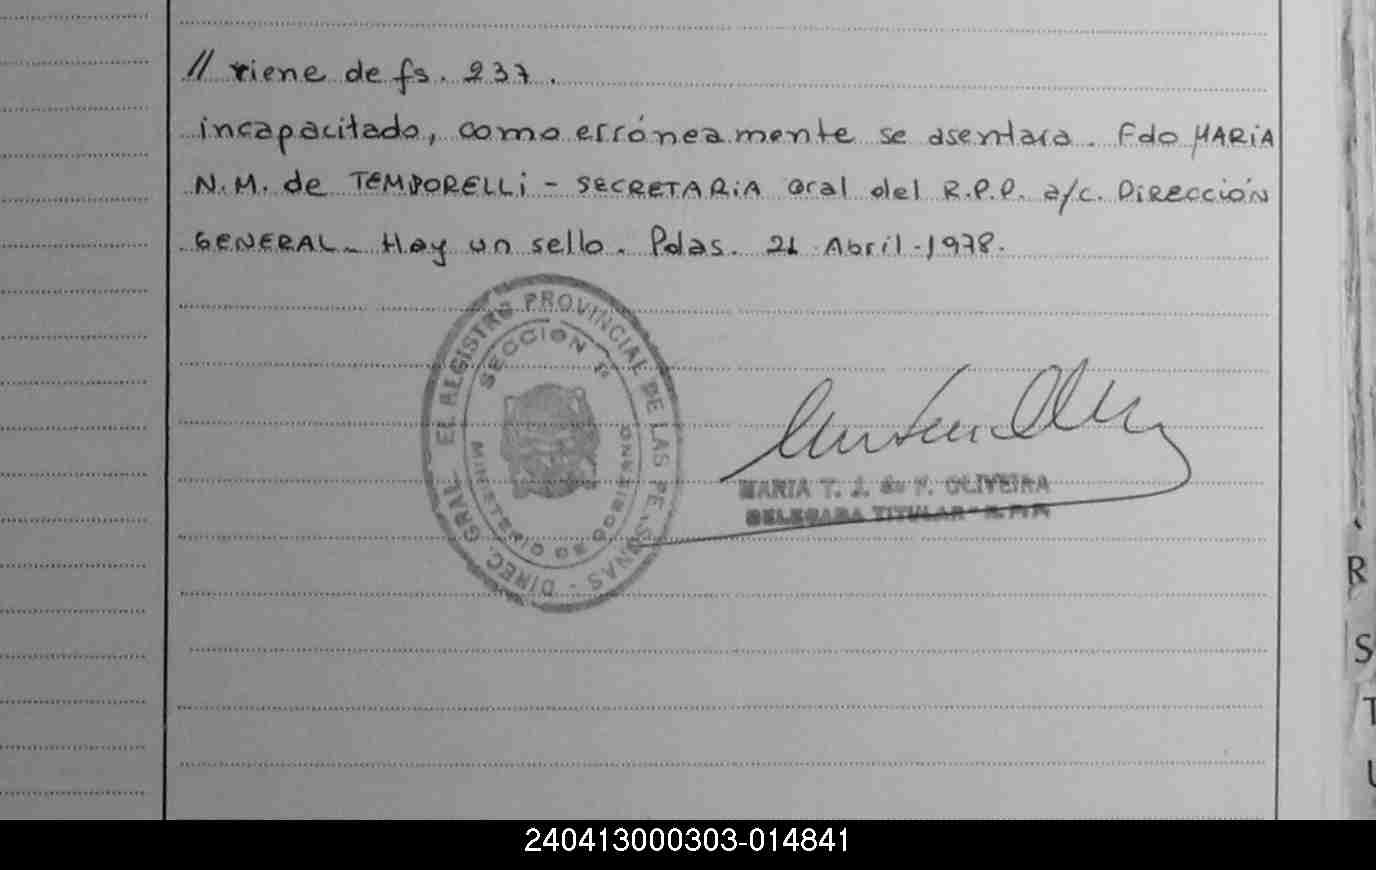 // viene de fs. 237.
incapacitado, como erróneamente se asentara. Fdo MARIA
N.M. de TEMPORELLI - SECRETARIA Gral del R.P.P. a/c. DIRECCIÓN
GENERAL. Hay un sello. Pdas. 21 Abril-1978.
DIREC. GRAL. EL REGISTRO PROVINCIAL DE LAS PERSONAS -
SECCION
MINISTERIO DE GOBIERNO
MARIA T. J. de F. OLIVEIRA
DELEGADA TITULAR - R.P.P.
R
S
T
U
240413000303-014841